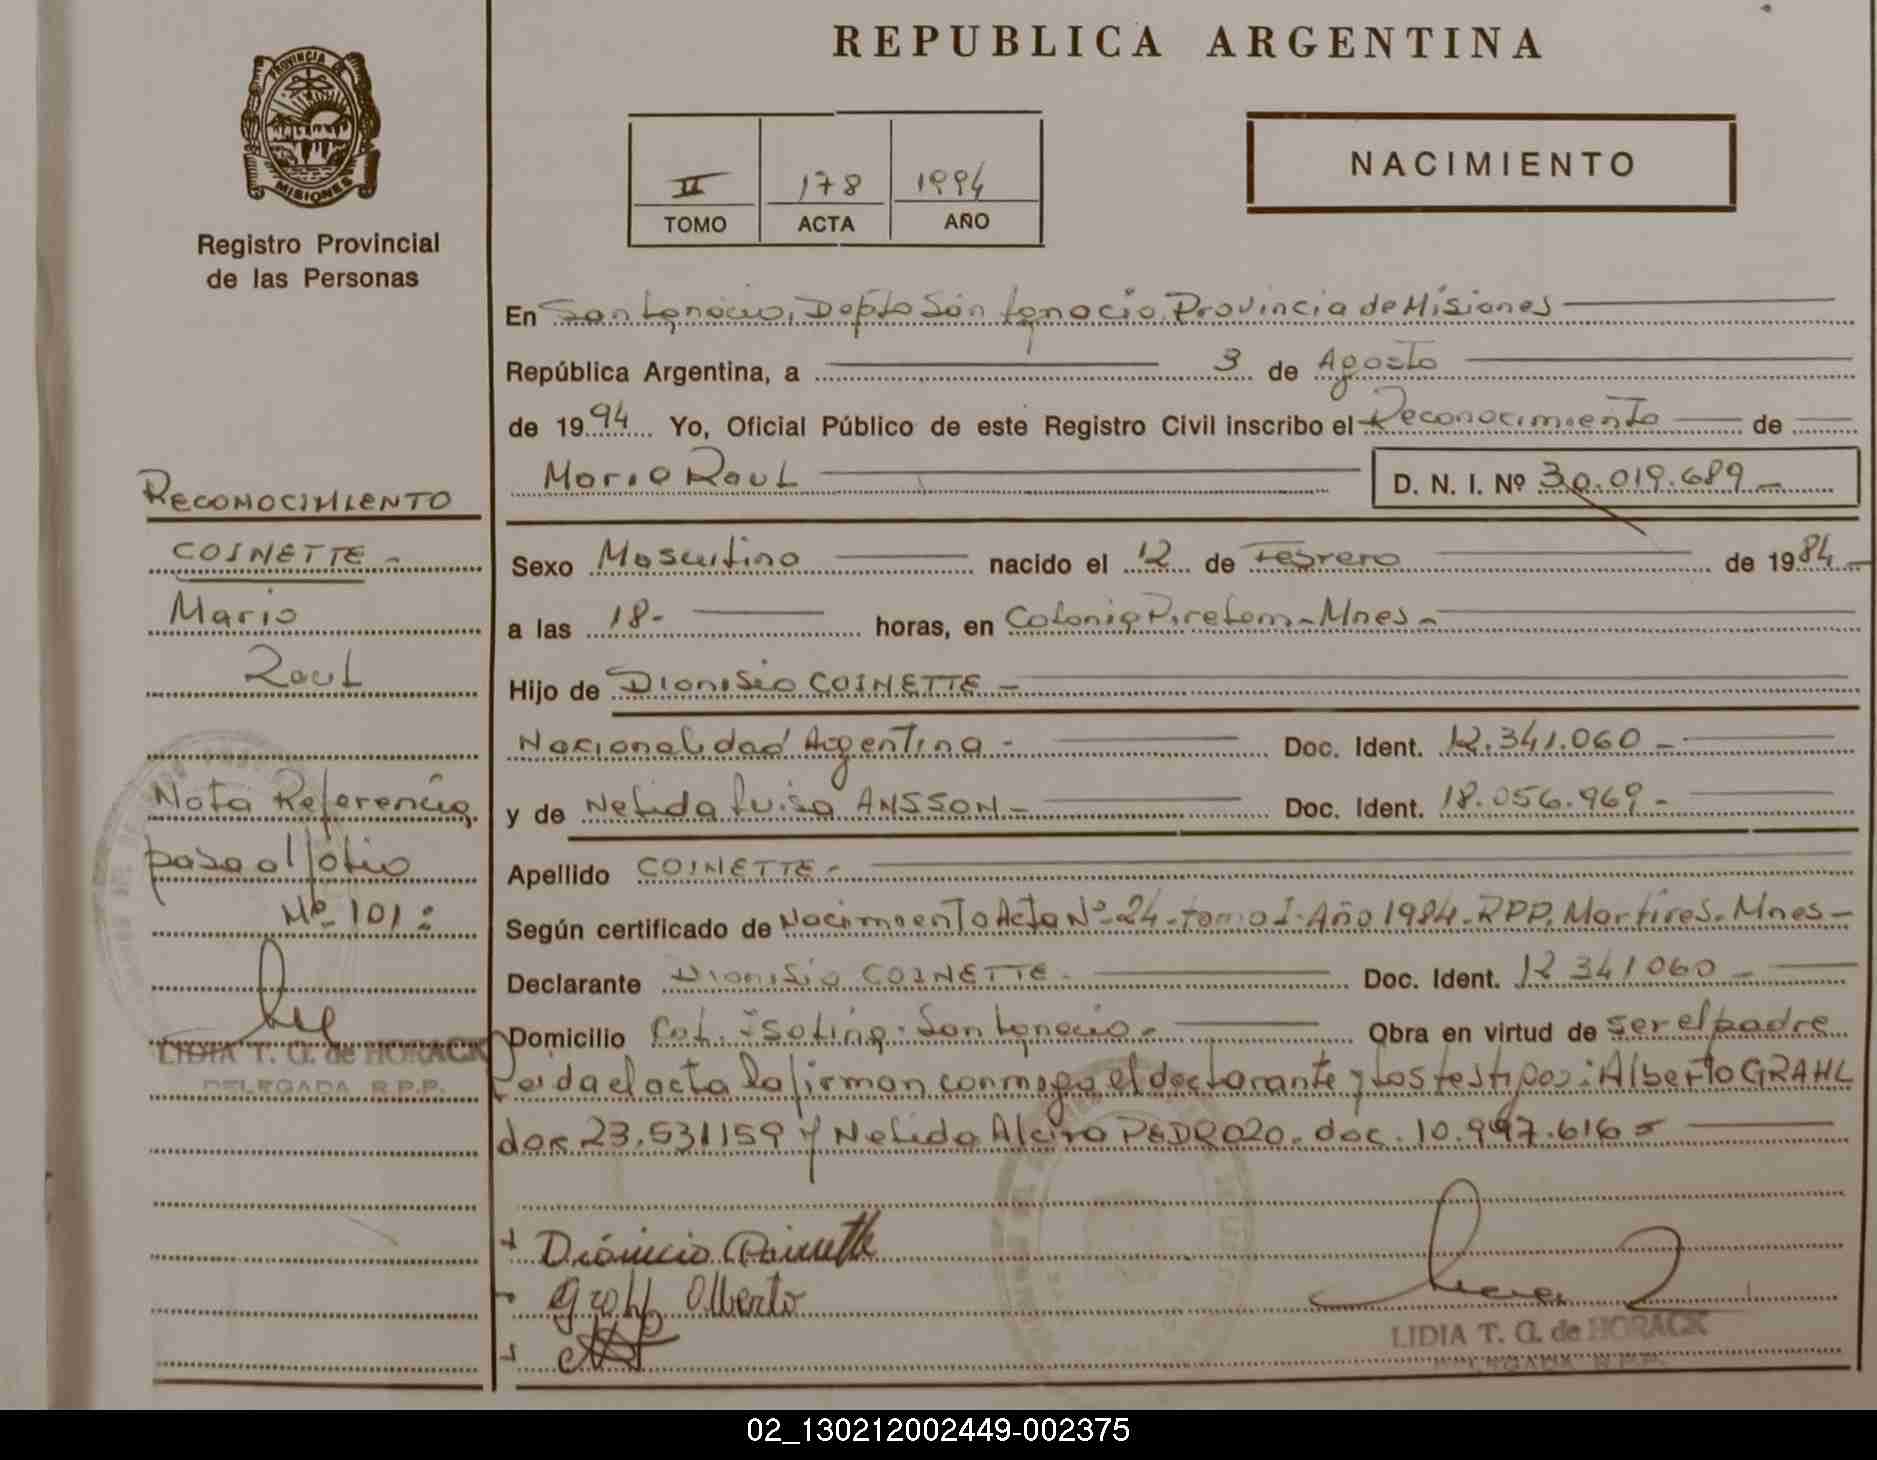 REPUBLICA ARGENTINA
PROVINCIA DE
MISIONES
Registro Provincial
de las Personas
II 178 1994
TOMO ACTA AÑO
NACIMIENTO
En San Ignacio, Depto San Ignacio, Provincia de Misiones
República Argentina, a 3 de Agosto
de 1994 Yo, Oficial Público de este Registro Civil inscribo el Reconocimiento de
Mario Raul D. N. I. Nº 30.019.689-
Sexo Masculino nacido el 12 de Febrero de 1984-
a las 18- horas, en Colonia - Mnes-
Hijo de Dionisio COINETTE -
Nacionalidad Argentina - Doc. Ident. 12.341.060 -
y de Nelida Luisa ANSSON- Doc. Ident. 18.056.969-
Apellido COINETTE-
Según certificado de Nacimiento Acta Nº-24-tomo I-Año 1984-RPP. Martires-Mnes-
Declarante Dionisio COINETTE- Doc. Ident. 12 341060 -
Domicilio Col. San Ignacio- Obra en virtud de ser el padre
Leida el acta la firman conmigo el declarante y los testigos: Alberto GRAHL
doc. 23.531159 y Nelida Alcira PEDROZO- doc. 10.997.616-
RECONOCIMIENTO
COINETTE -
Mario
Raul
Nota Referencia
pasa al folio
Nº 101:
LIDIA T. G. de HORACK
DELEGADA R.P.P.
Dionicio Coinette
Grahl Alberto
LIDIA T. G. de HORACK
DELEGADA R.P.P.
02_130212002449-002375